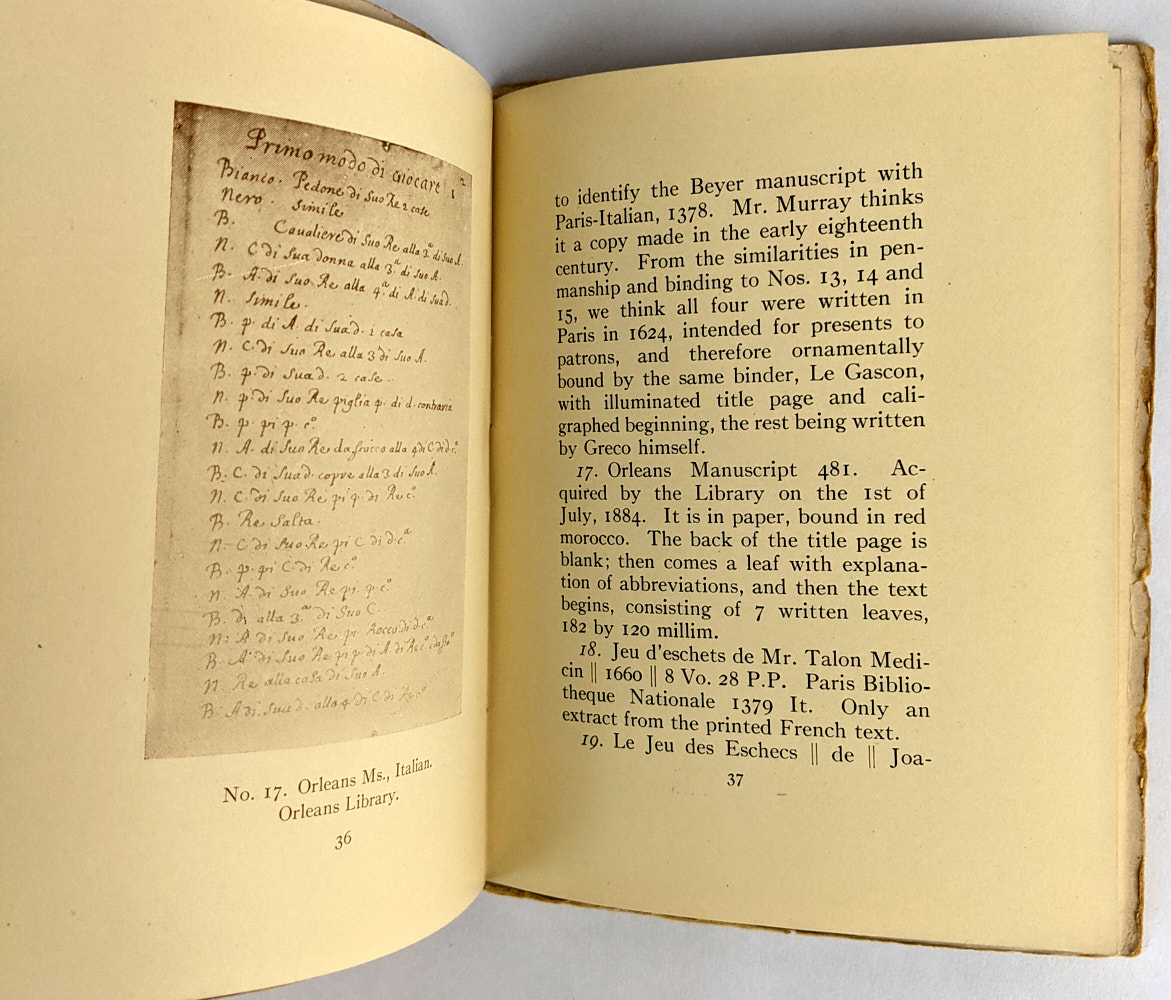 Primo modo di Giocare 1
Bianco. Pedone di Suo Re 2 case
Nero. Simile
B. Cavaliere di Suo Re alla 3.ª di Suo A.
N. C di Sua donna alla 3.ª di Suo A.
B. A. di Suo Re alla 4.ª di A. di Sua d.
N. Simile.
B. p. di A. di Sua d. 1 casa
N. C. di Suo Re alla 3 di Suo A.
B. p. di Sua d. 2 case.
N. p. di Suo Re piglia p. di d. contraria
B. p. pi p. c.º
N. A. di Suo Re da scacco alla 4 di C di d. c.ª
B. C. di Sua d. copre alla 3 di Suo A.
N. C. di Suo Re pi p. di Re c.º
B. Re Salta.
N. C. di Suo Re pi C di d. c.ª
B. p. pi C. di Re c.º
N. A. di Suo Re pi. p. c.º
B. d. alla 3.ª di Suo C.
N. A di Suo Re pi Rocco di d. c.ª
B. A. di Suo Re pi p di A. di Re c.º
N. Re alla casa di Suo A.
B. A di Sua d. alla 4 di C di Re c.º
No. 17. Orleans Ms., Italian.
Orleans Library.
36
to identify the Beyer manuscript with
Paris-Italian, 1378. Mr. Murray thinks
it a copy made in the early eighteenth
century. From the similarities in pen-
manship and binding to Nos. 13, 14 and
15, we think all four were written in
Paris in 1624, intended for presents to
patrons, and therefore ornamentally
bound by the same binder, Le Gascon,
with illuminated title page and cali-
graphed beginning, the rest being written
by Greco himself.
17. Orleans Manuscript 481. Ac-
quired by the Library on the 1st of
July, 1884. It is in paper, bound in red
morocco. The back of the title page is
blank; then comes a leaf with explana-
tion of abbreviations, and then the text
begins, consisting of 7 written leaves,
182 by 120 millim.
18. Jeu d'eschets de Mr. Talon Medi-
cin || 1660 || 8 Vo. 28 P.P. Paris Biblio-
theque Nationale 1379 It. Only an
extract from the printed French text.
19. Le Jeu des Eschecs || de || Joa-
37